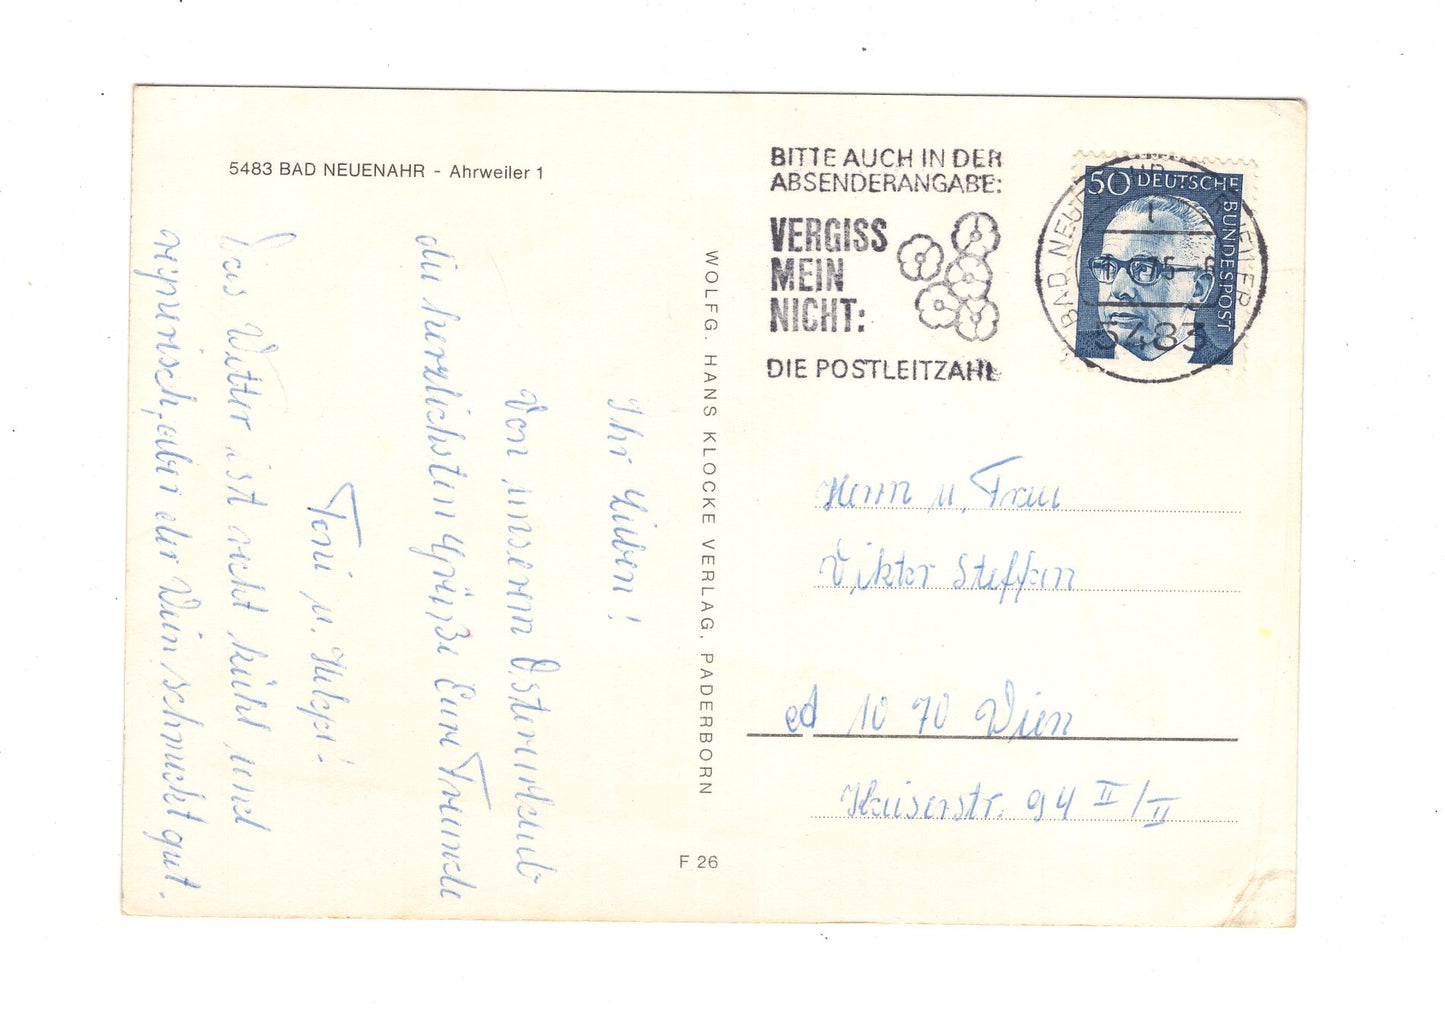 5483 BAD NEUENAHR - Ahrweiler 1
Ihr Lieben!
Von unserem Osterurlaub
die herzlichsten Grüße Eure Freunde
Toni u.
Das Wetter ist recht kühl und
regnerisch, aber der Wein schmeckt gut.
WOLFG. HANS KLOCKE VERLAG, PADERBORN
F 26
BITTE AUCH IN DER
ABSENDERANGABE:
VERGISS
MEIN
NICHT:
DIE POSTLEITZAHL
50 DEUTSCHE
BUNDESPOST
BAD NEUENAHR-AHRWEILER
1
75
5483
Herrn u. Frau
Viktor Steffan
1070 Wien
Kaiserstr. 94 II/II